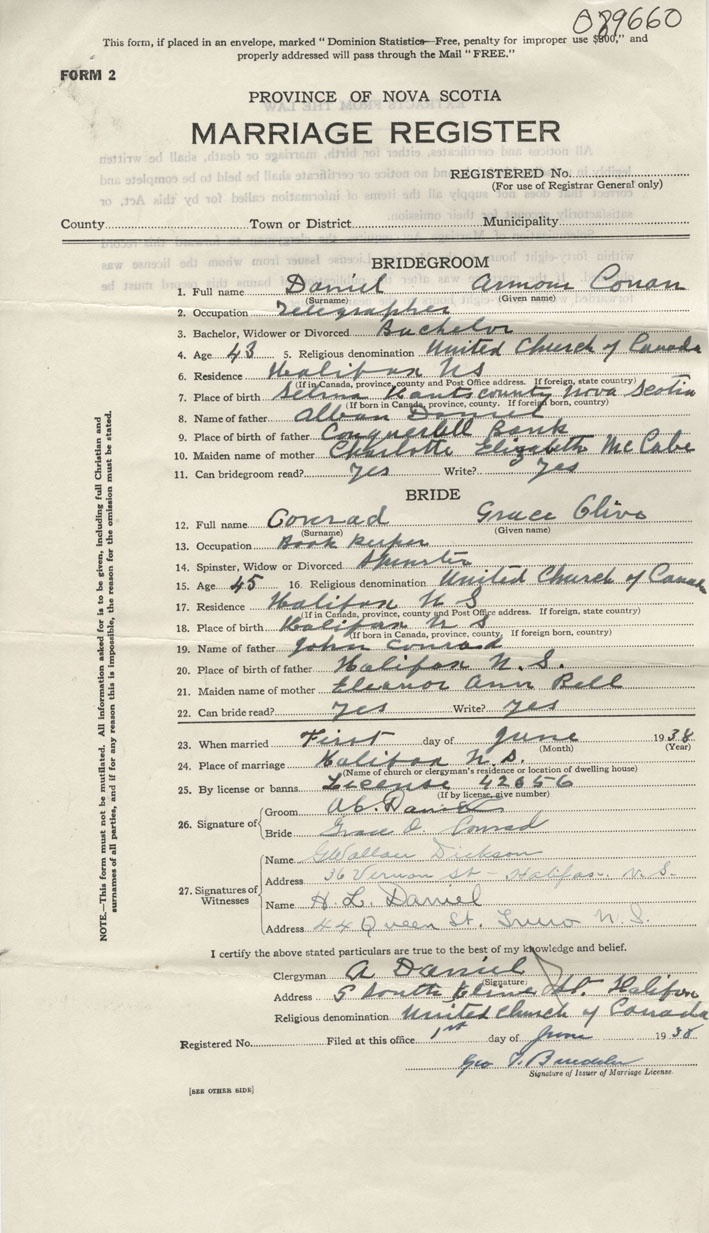 039660
This form, if placed in an envelope, marked "Dominion Statistics—Free, penalty for improper use $300," and
properly addressed will pass through the Mail "FREE."
FORM 2
PROVINCE OF NOVA SCOTIA
MARRIAGE REGISTER
REGISTERED No.
(For use of Registrar General only)
County Town or District Municipality
BRIDEGROOM
1. Full name Daniel Armour Conan
(Surname) (Given name)
2. Occupation Telegrapher
3. Bachelor, Widower or Divorced Bachelor
4. Age 43 5. Religious denomination United Church of Canada
6. Residence Halifax NS
(If in Canada, province, county and Post Office address. If foreign, state country)
7. Place of birth Selma Hants county Nova Scotia
(If born in Canada, province, county. If foreign born, country)
8. Name of father Alban Daniel
9. Place of birth of father Conquerall Bank
10. Maiden name of mother Charlotte Elizabeth McCabe
11. Can bridegroom read? Yes Write? Yes
BRIDE
12. Full name Conrad Grace Olive
(Surname) (Given name)
13. Occupation Book Keeper
14. Spinster, Widow or Divorced Spinster
15. Age 45 16. Religious denomination United Church of Canada
17. Residence Halifax N S
(If in Canada, province, county and Post Office address. If foreign, state country)
18. Place of birth Halifax N S
(If born in Canada, province, county. If foreign born, country)
19. Name of father John Conrad
20. Place of birth of father Halifax N.S.
21. Maiden name of mother Eleanor Ann Bell
22. Can bride read? Yes Write? Yes
23. When married First day of June 1938
(Month) (Year)
24. Place of marriage Halifax N.S.
(Name of church or clergyman's residence or location of dwelling house)
25. By license or banns License 42656
(If by license, give number)
26. Signature of Groom A C. Daniel
Bride Grace O. Conrad
27. Signatures of Witnesses Name G Wallace Dickson
Address 36 Vernon St - Halifax. N.S.
Name H. L. Daniel
Address 44 Queen St. Truro N.S.
I certify the above stated particulars are true to the best of my knowledge and belief.
Clergyman A Daniel
(Signature)
Address 5 South Kline St. Halifax
Religious denomination United Church of Canada
Registered No. Filed at this office 1st day of June 1938
Geo
Signature of Issuer of Marriage License.
[SEE OTHER SIDE]
NOTE.—This form must not be mutilated. All information asked for is to be given, including full Christian and
surnames of all parties, and if for any reason this is impossible, the reason for the omission must be stated.